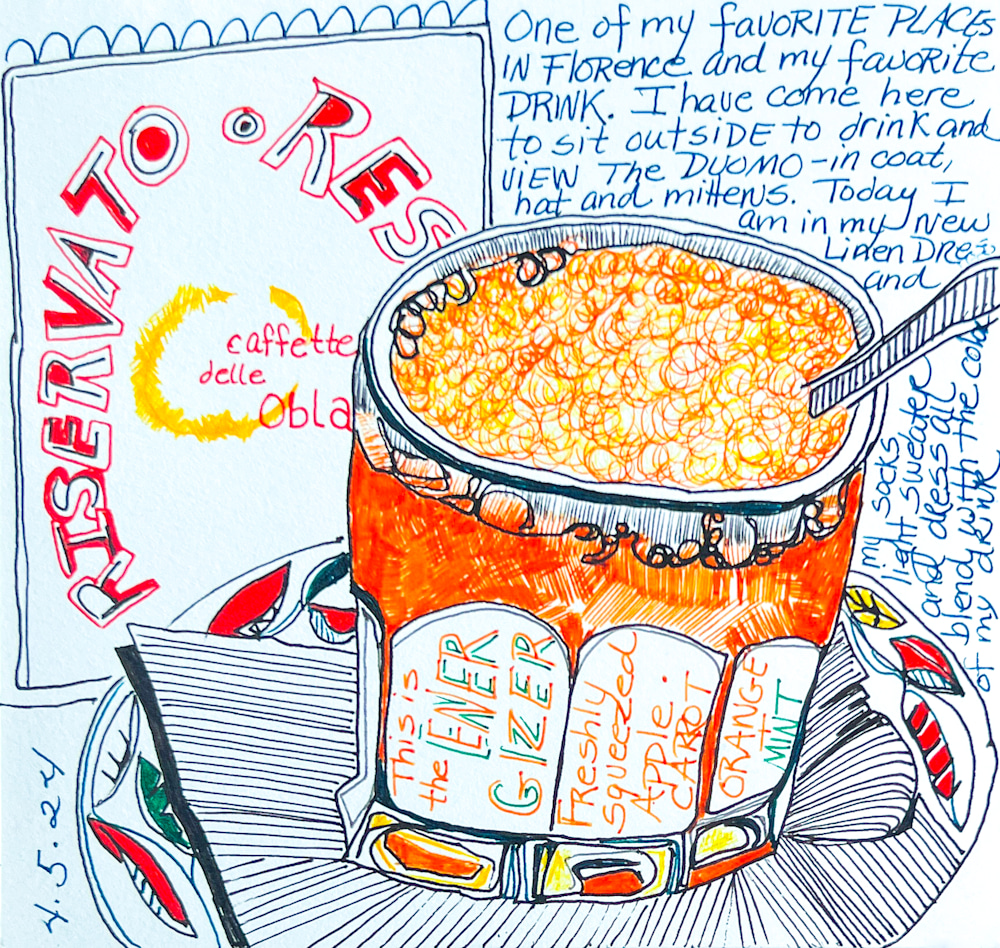 One of my favorite places
in Florence and my favorite
drink. I have come here
to sit outside to drink and
view the Duomo - in coat,
hat and mittens. Today I
am in my new
linen dress
and
my socks
light sweater
and dress all
blend with the color
of my drink
RISERVATO • RES
caffette
delle
Obla
This is
the ENER
GIZER
Freshly
Squeezed
Apple.
Carrot
Orange
+
Mint
4.5.24